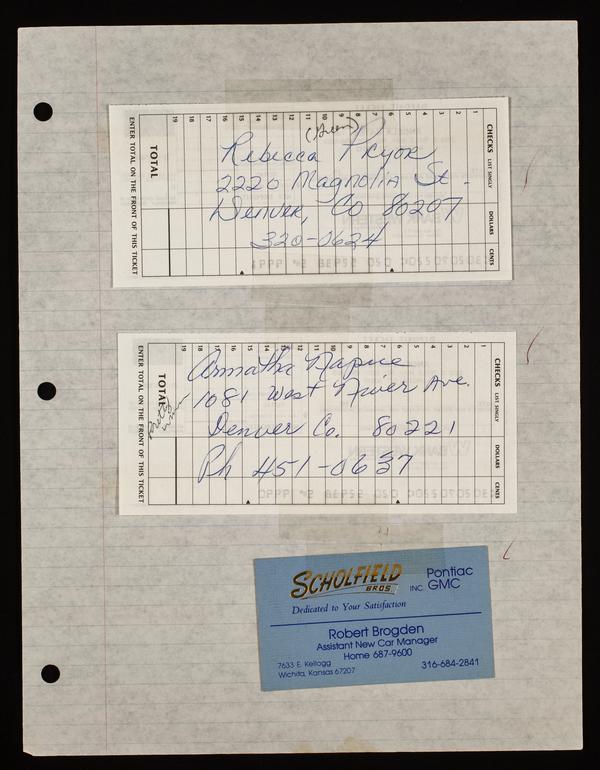 (Green)
Rebecca Pryor
2220 Magnolia St.
Denver, Co 80207
320-0624
CHECKS LIST SINGLY DOLLARS CENTS
1 2 3 4 5 6 7 8 9 10 11 12 13 14 15 16 17 18 19
TOTAL
ENTER TOTAL ON THE FRONT OF THIS TICKET
Armatha Napue
1081 West River Ave.
Denver Co. 80221
Ph 451-0637
CHECKS LIST SINGLY DOLLARS CENTS
1 2 3 4 5 6 7 8 9 10 11 12 13 14 15 16 17 18 19
TOTAL
ENTER TOTAL ON THE FRONT OF THIS TICKET
SCHOLFIELD
BROS INC
Pontiac
GMC
Dedicated to Your Satisfaction
Robert Brogden
Assistant New Car Manager
Home 687-9600
7633 E. Kellogg
Wichita, Kansas 67207
316-684-2841